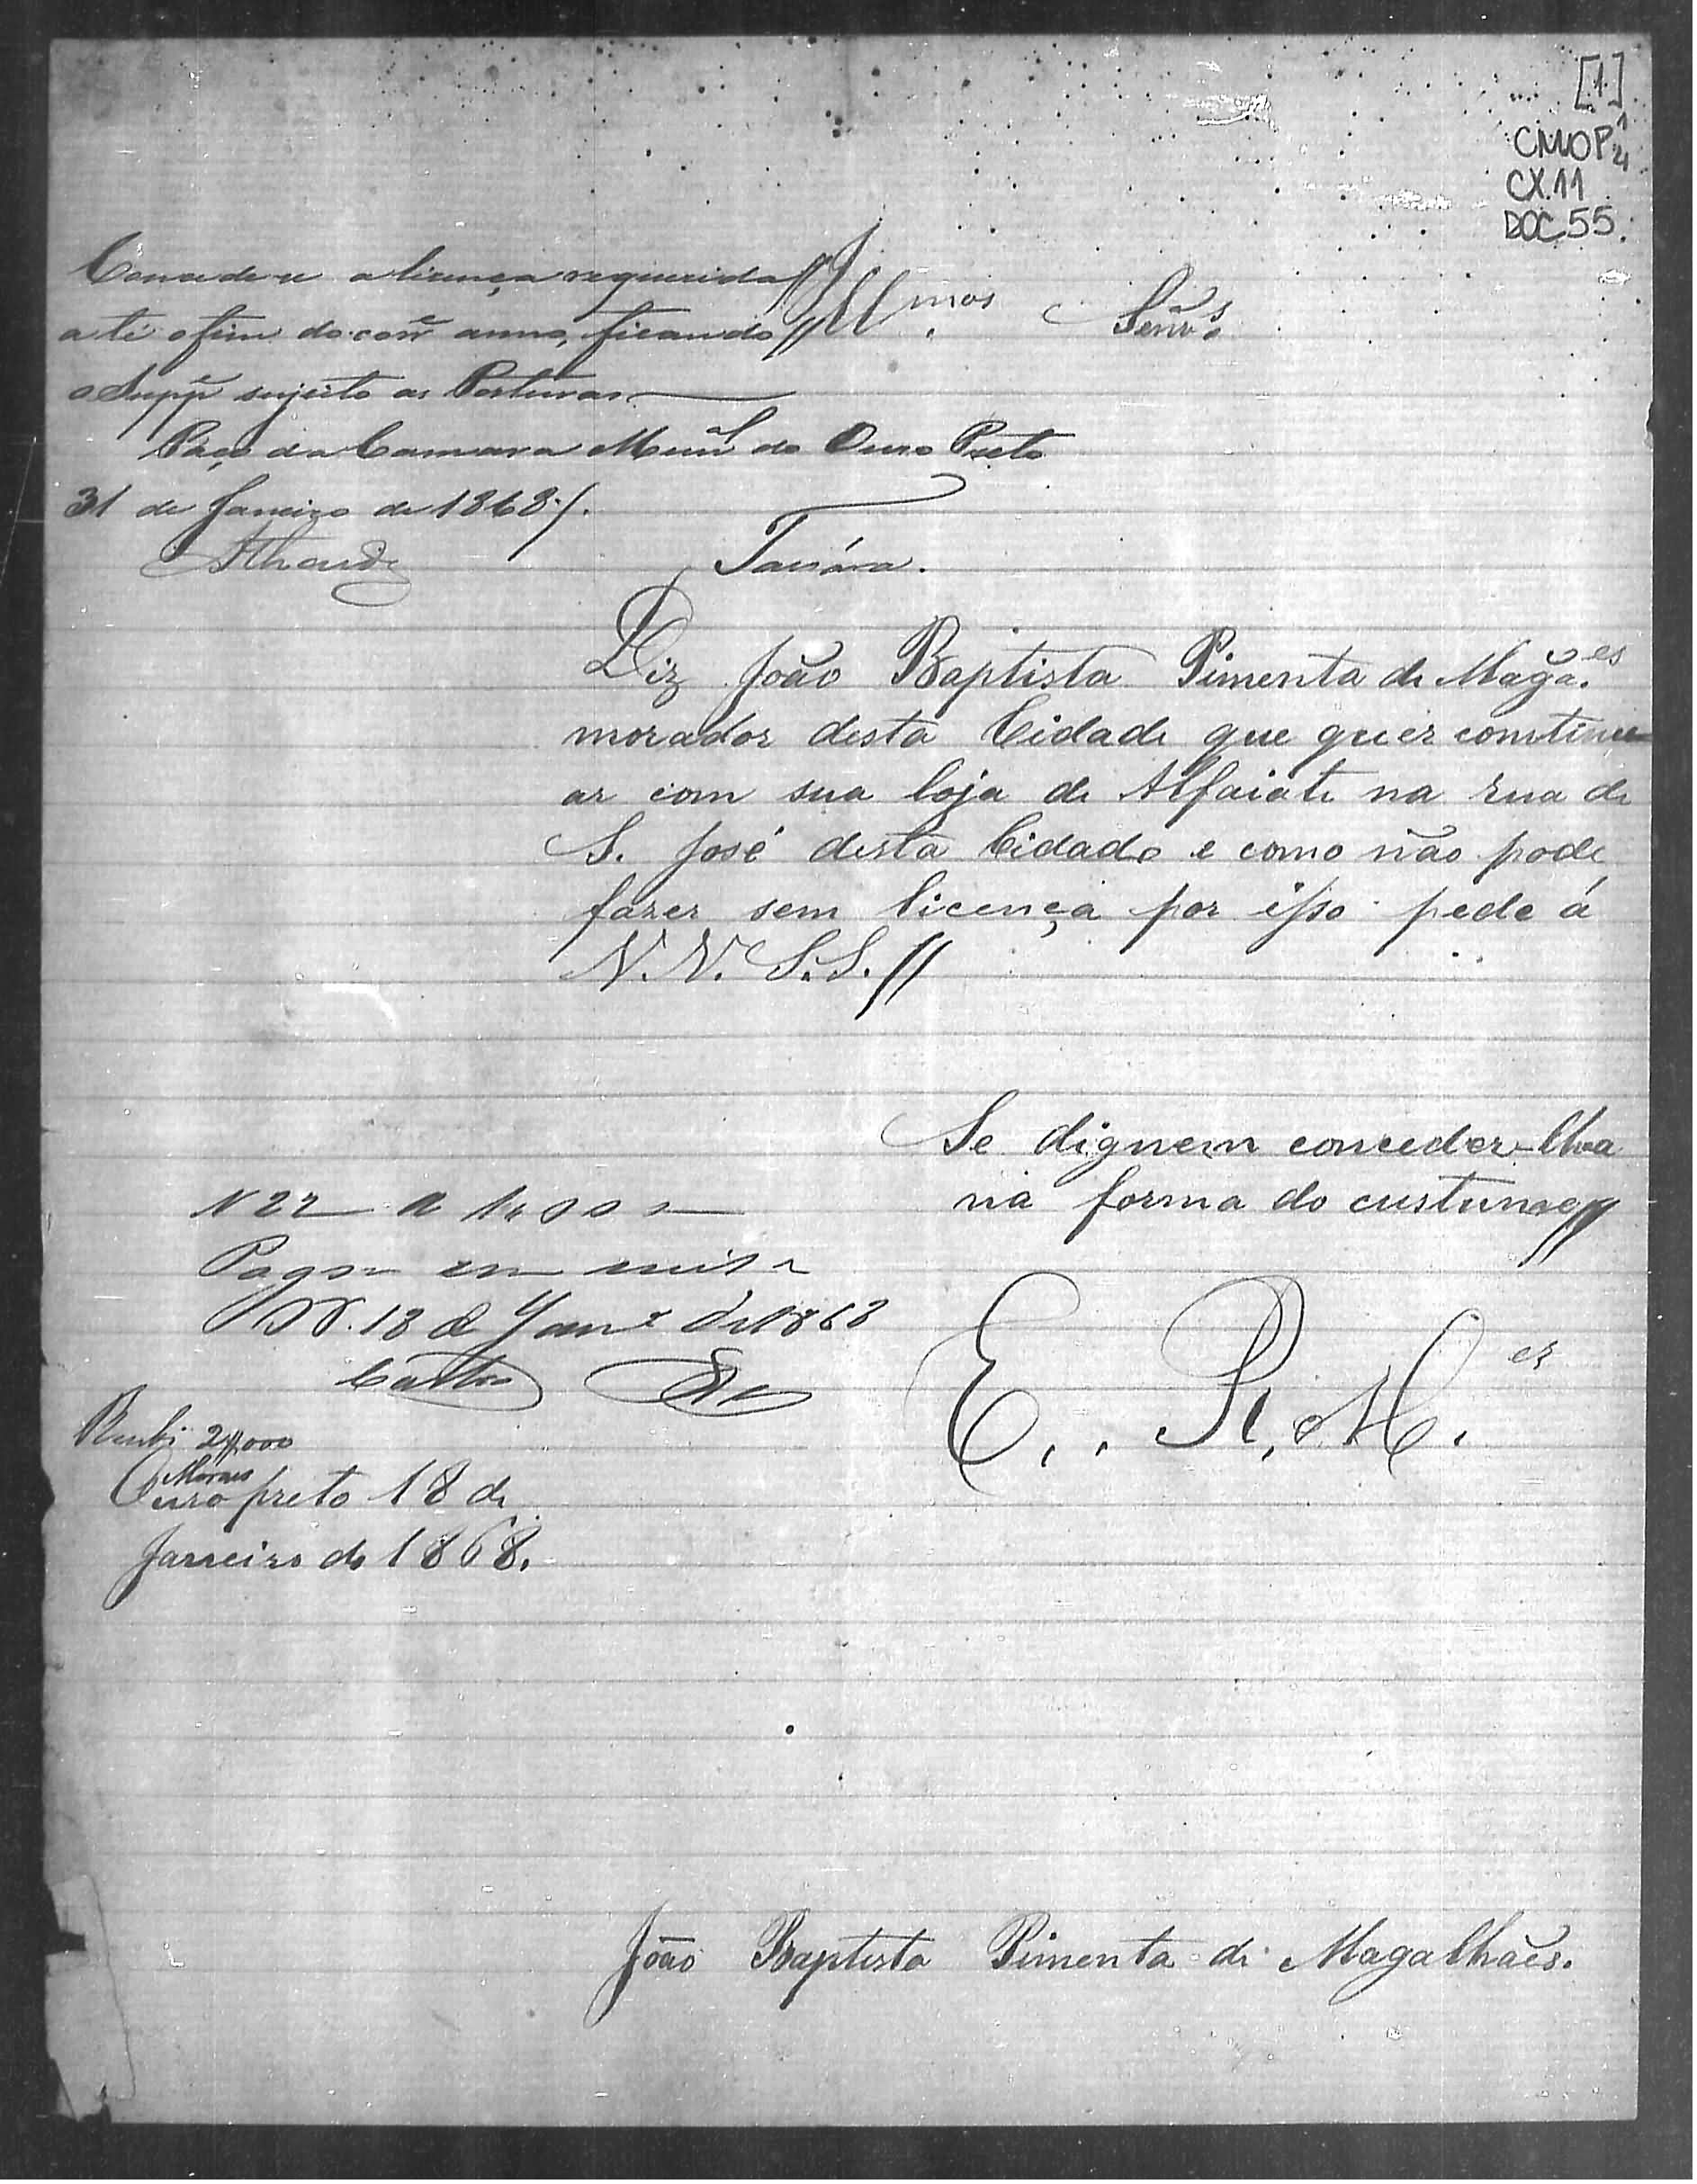 [1]
CMOP 1/4
CX.11
DOC.55.
Illmos Senr.es
Concede-se a licença requerida
até o fim do corre anno, ficando
o Suppe sujeito as Posturas.
Paço da Camara Munal do Ouro Preto
31 de Janeiro de 1868.
Tavóra.
Diz João Baptista Pimenta de Maga.es
morador desta Cidade que quer comtinu
ar com sua loja de Alfaiate na rua de
S. José desta Cidade e como não pode
fazer sem licença por isso pede á
V.V. S.S. //
Se dignem conceder-lha
na forma do custume//
E. R. Mcê
N 22
Pagou
18 de Janro de 1868
Castro
Recebi 2$000
Moraes
Ouro preto 18 de
Janeiro de 1868.
João Baptista Pimenta de Magalhães.